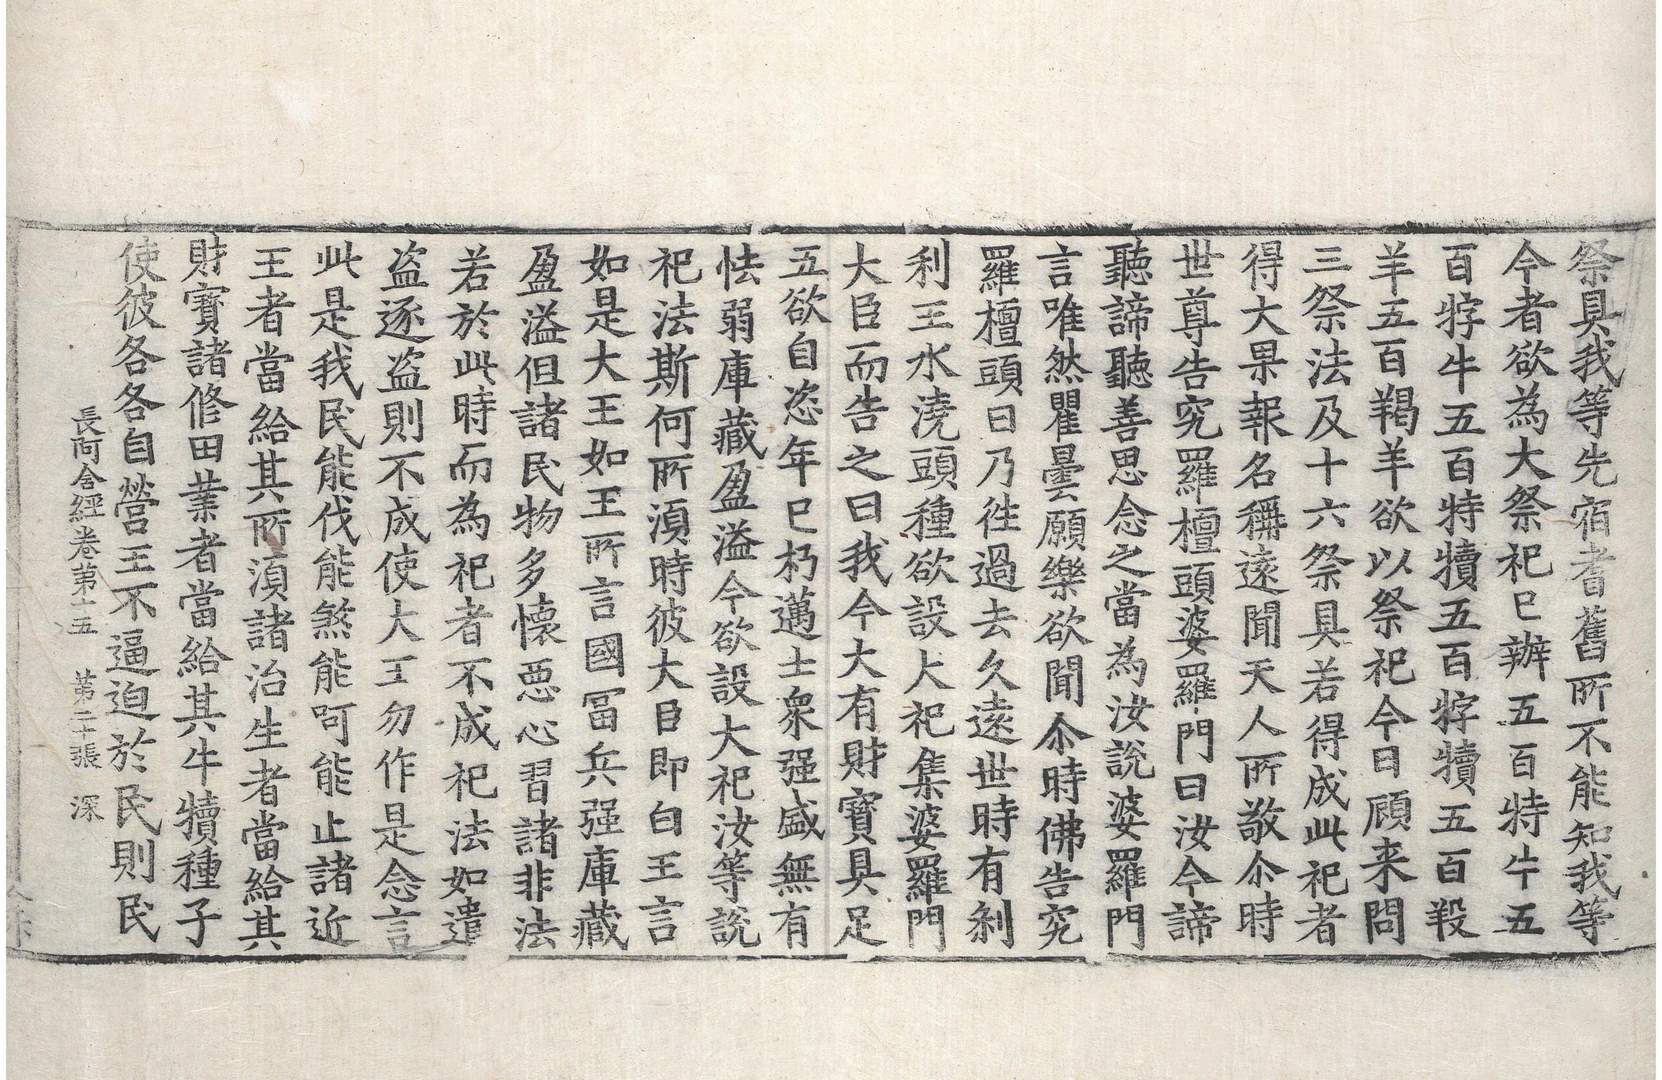 祭具我等先宿耆舊所不能知我等
今者欲為大祭祀已辦五百特牛五
百牸牛五百特犢五百牸犢五百羖
羊五百羯羊欲以祭祀今日顧来問
三祭法及十六祭具若得成此祀者
得大果報名稱遠聞天人所敬尒時
世尊告究羅檀頭婆羅門曰汝今諦
聽諦聽善思念之當為汝說婆羅門
言唯然瞿曇願樂欲聞尒時佛告究
羅檀頭曰乃往過去久遠世時有剎
利王水澆頭種欲設大祀集婆羅門
大臣而告之曰我今大有財寶具足
五欲自恣年已朽邁士衆强盛無有
怯弱庫藏盈溢今欲設大祀汝等說
祀法斯何所湏時彼大臣即白王言
如是大王如王所言國冨兵强庫藏
盈溢但諸民物多懷惡心習諸非法
若於此時而為祀者不成祀法如遣
盗逐盗則不成使大王勿作是念言
此是我民能伐能煞能呵能止諸近
王者當給其所湏諸治生者當給其
財寶諸修田業者當給其牛犢種子
使彼各各自營王不逼迫於民則民
長阿含經卷第十五 第二十張 深